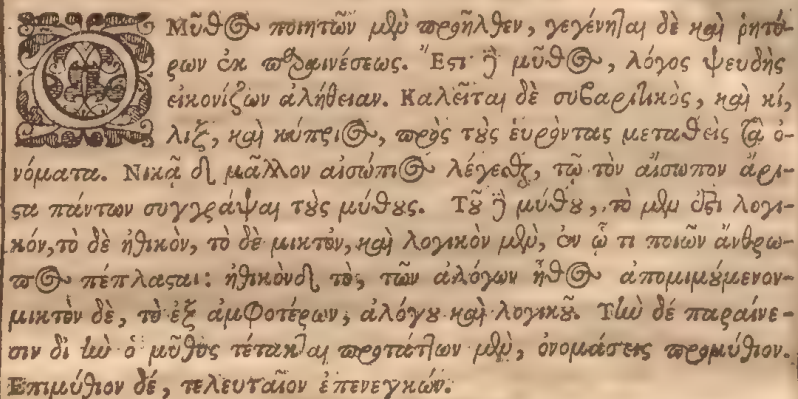 Ὁ Μῦθος ποιητῶν μὲν προῆλθεν, γεγένηται δὲ καὶ ῥητό-
ρων ἐκ παραινέσεως. Ἔστι δὲ μῦθος, λόγος ψευδὴς
εἰκονίζων ἀλήθειαν. Καλεῖται δὲ συβαριτικὸς, καὶ κί,
λιξ, καὶ κύπριος, πρὸς τοὺς εὑρόντας μεταθεὶς τὰ ὀ-
νόματα. Νικᾷ δὲ μᾶλλον αἰσώπιος λέγεσθαι, τῷ τὸν αἴσωπον ἄρι-
στα πάντων συγγράψαι τοὺς μύθους. Τοῦ δὲ μύθου, τὸ μὲν ἐστι λογι-
κόν, τὸ δὲ ἠθικὸν, τὸ δὲ μικτὸν, καὶ λογικὸν μὲν, ἐν ᾧ τι ποιῶν ἄνθρω-
πος πέπλασται: ἠθικὸν δὲ τὸ, τῶν ἀλόγων ἦθος ἀπομιμούμενον·
μικτὸν δὲ, τὸ ἐξ ἀμφοτέρων, ἀλόγου καὶ λογικοῦ. Τὴν δέ παραίνε-
σιν δι ἣν ὁ μῦθος τέτακται προτάττων μὲν, ὀνομάσεις προμύθιον.
Ἐπιμύθιον δέ, τελευταῖον ἐπενεγκών.